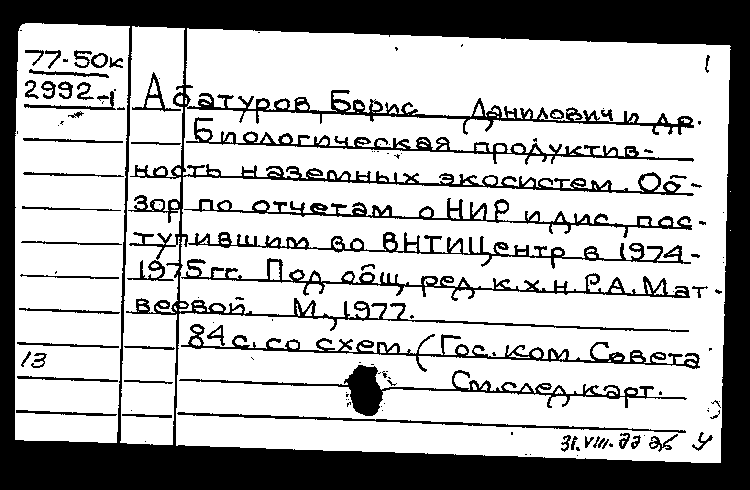 77-50к
2992-1
1
Абатуров, Борис Данилович и др.
Биологическая продуктив-
ность наземных экосистем. Об-
зор по отчетам о НИР и дис., пос-
тупившим во ВНТИЦентр в 1974-
1975 гг. Под общ. ред. к.х.н. Р.А. Мат-
веевой. М., 1977.
84 с. со схем. (Гос. ком. Совета
См. след. карт.
13
31.VIII.77